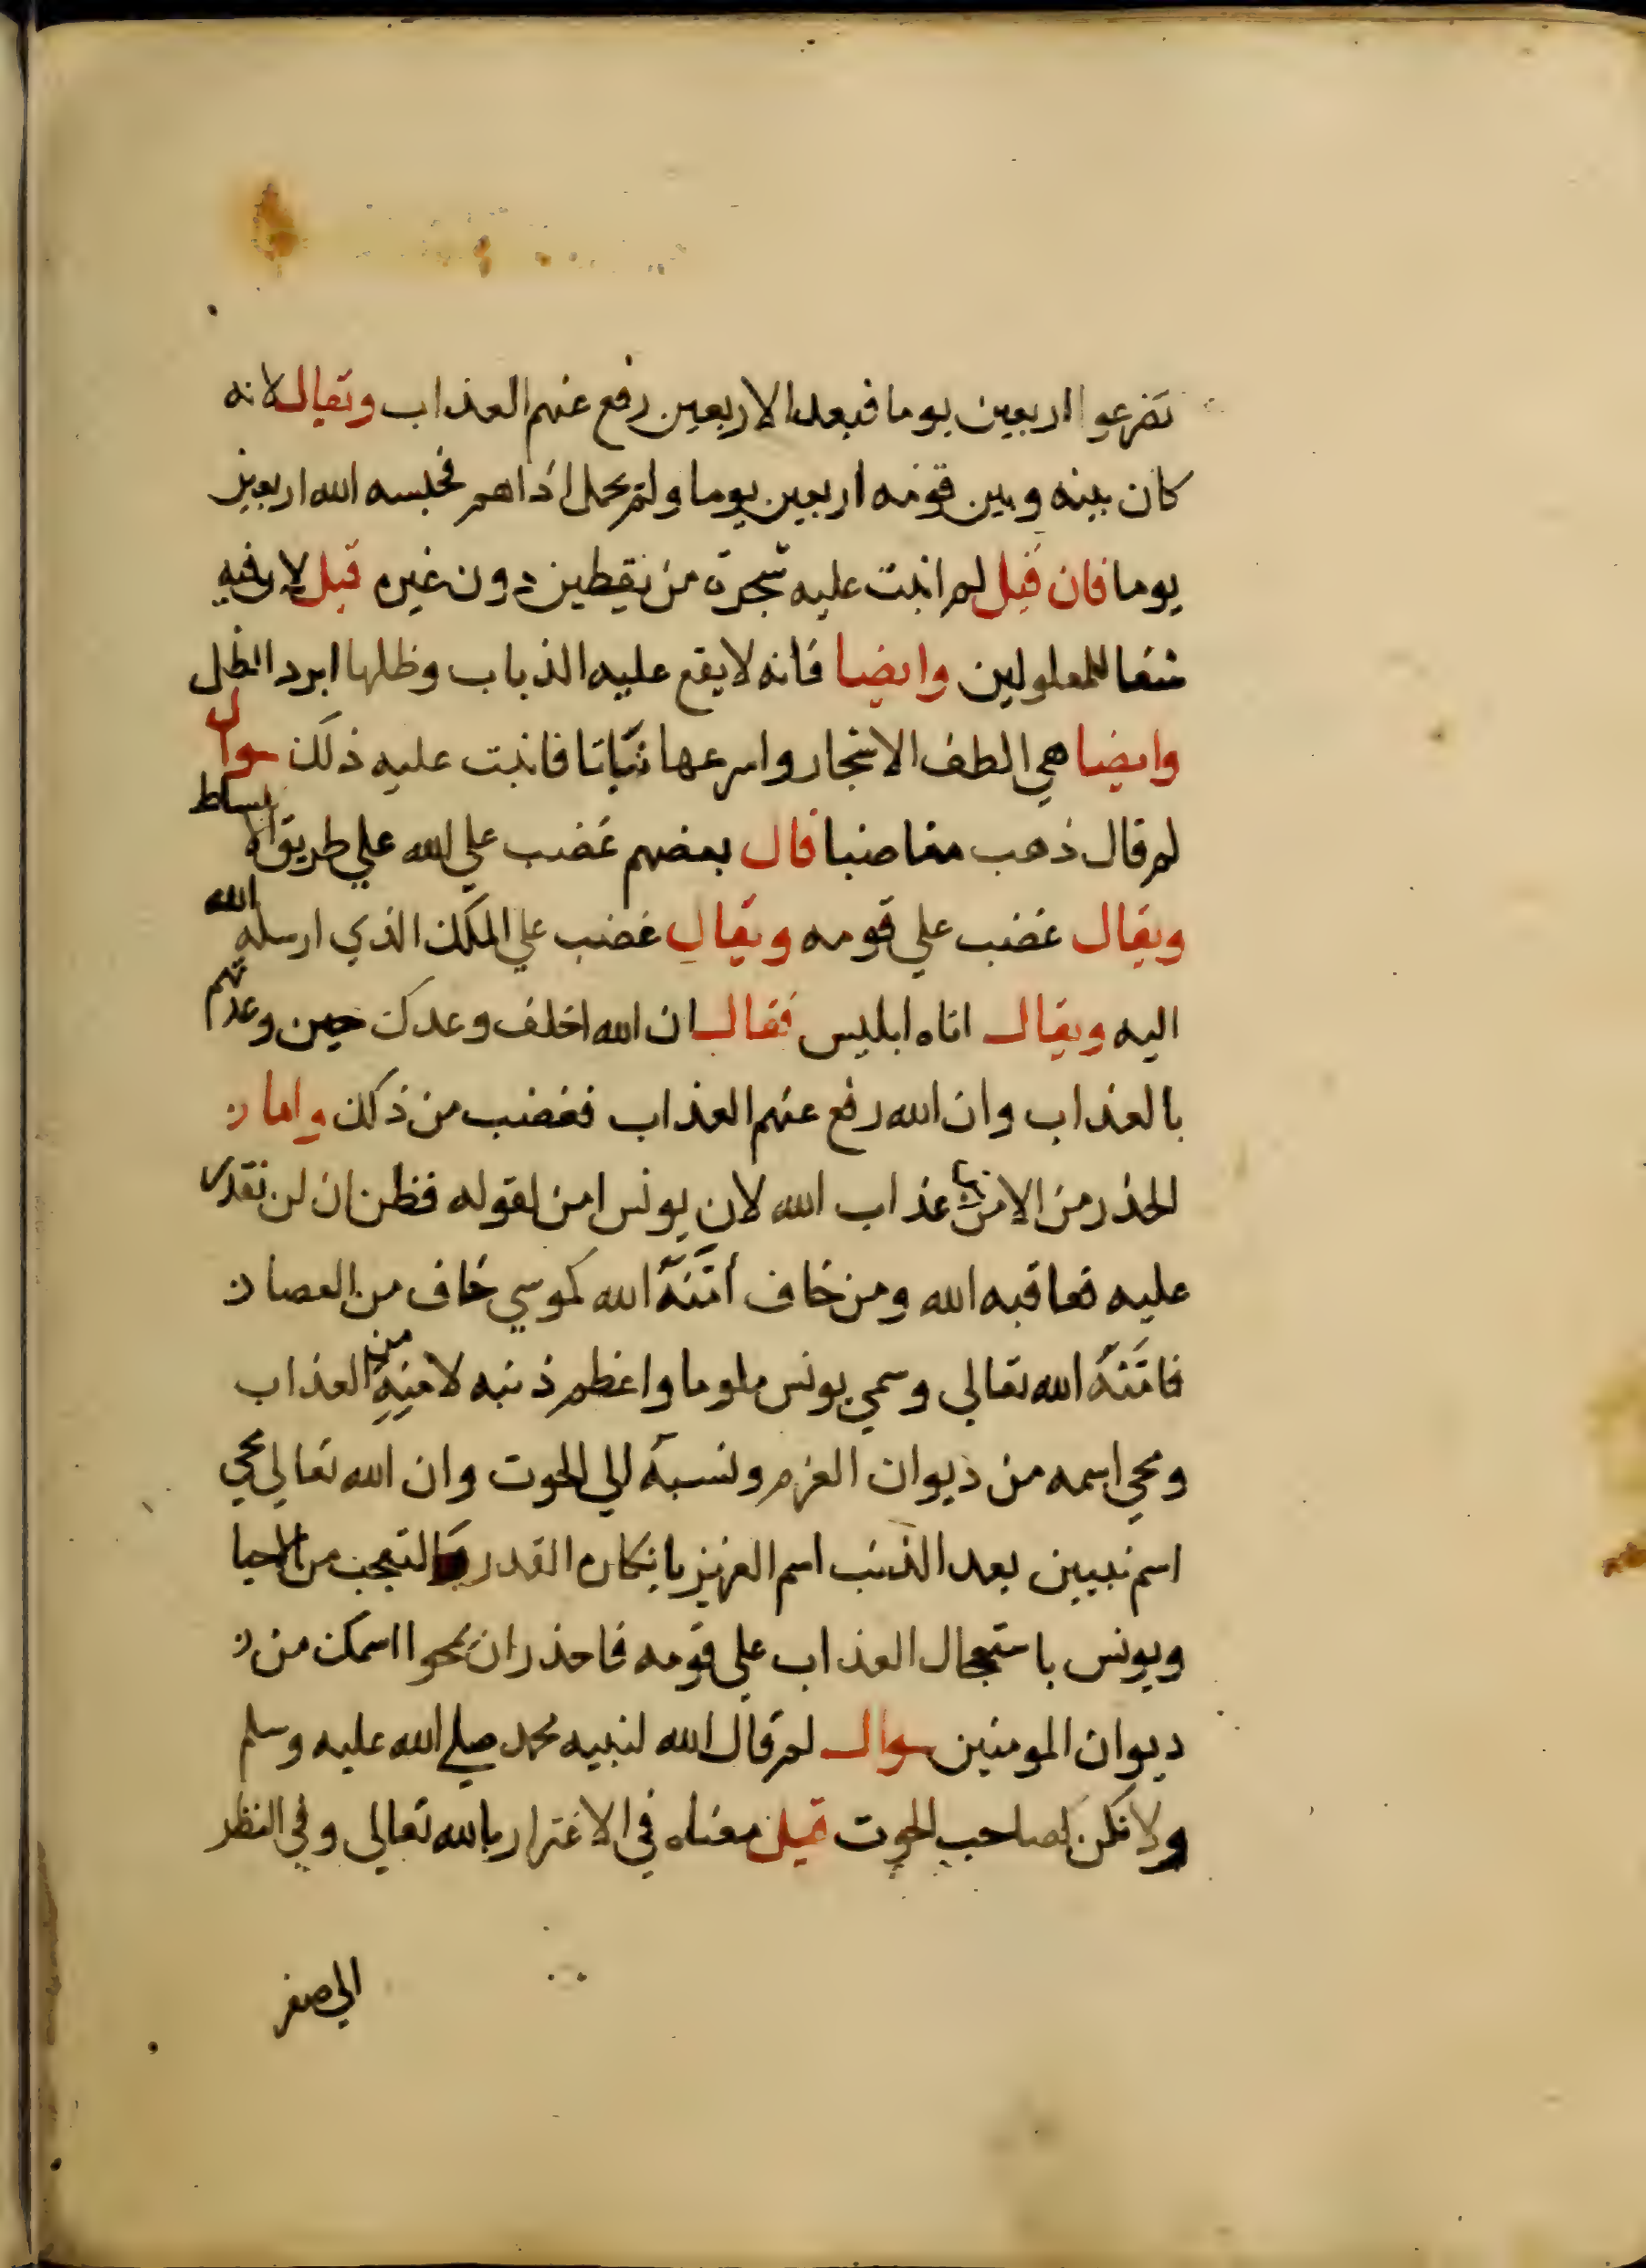 تضرعوا اربعين يوما فبعد الاربعين رفع عنهم العذاب ويقال لانه
كان بينه وبين قومه اربعين يوما ولم يحمل اذاهم فحبسه الله اربعين
يوما فان قيل لم انبت عليه شجرة من يقطين دون غيره قيل لان فيه
شفا للمعلولين وايضا فانه لا يقع عليه الذباب وظلها ابرد الظل
وايضا هي الطف الاشجار واسرعها نباتا فانبت عليه ذلك سوال
لم قال ذهب مغاضبا قال بعضهم غضب علي الله علي طريق الانبساط
ويقال غضب علي قومه ويقال غضب علي الملك الذي ارسله الله
اليه ويقال اتاه ابليس فقال ان الله اخلف وعدك حين وعدتهم
بالعذاب وان الله رفع عنهم العذاب فغضب من ذلك واما
الحذر من الامن من عذاب الله لان يونس امن لقوله فظن ان لن نقدر
عليه فعاقبه الله ومن خاف أمَّنَهُ الله كموسي خاف من العصا
فامَّنَهُ الله تعالي وسمي يونس ملوما واعظم ذنبه لامنِهِ من العذاب
ومحي اسمه من ديوان العزم ونسبه الي الحوت وان الله تعالي محي
اسم نبيين بعد الذنب اسم العزيز بانكاره القدر والتعجب من الاحيا
ويونس باستعجال العذاب علي قومه فاحذر ان يمحوا اسمك من
ديوان المومنين سوال لم قال الله لنبيه محمد صلي الله عليه وسلم
ولا تكن كصاحب الحوت قيل معناه في الاغترار بالله تعالي وفي النظر
الي صغر